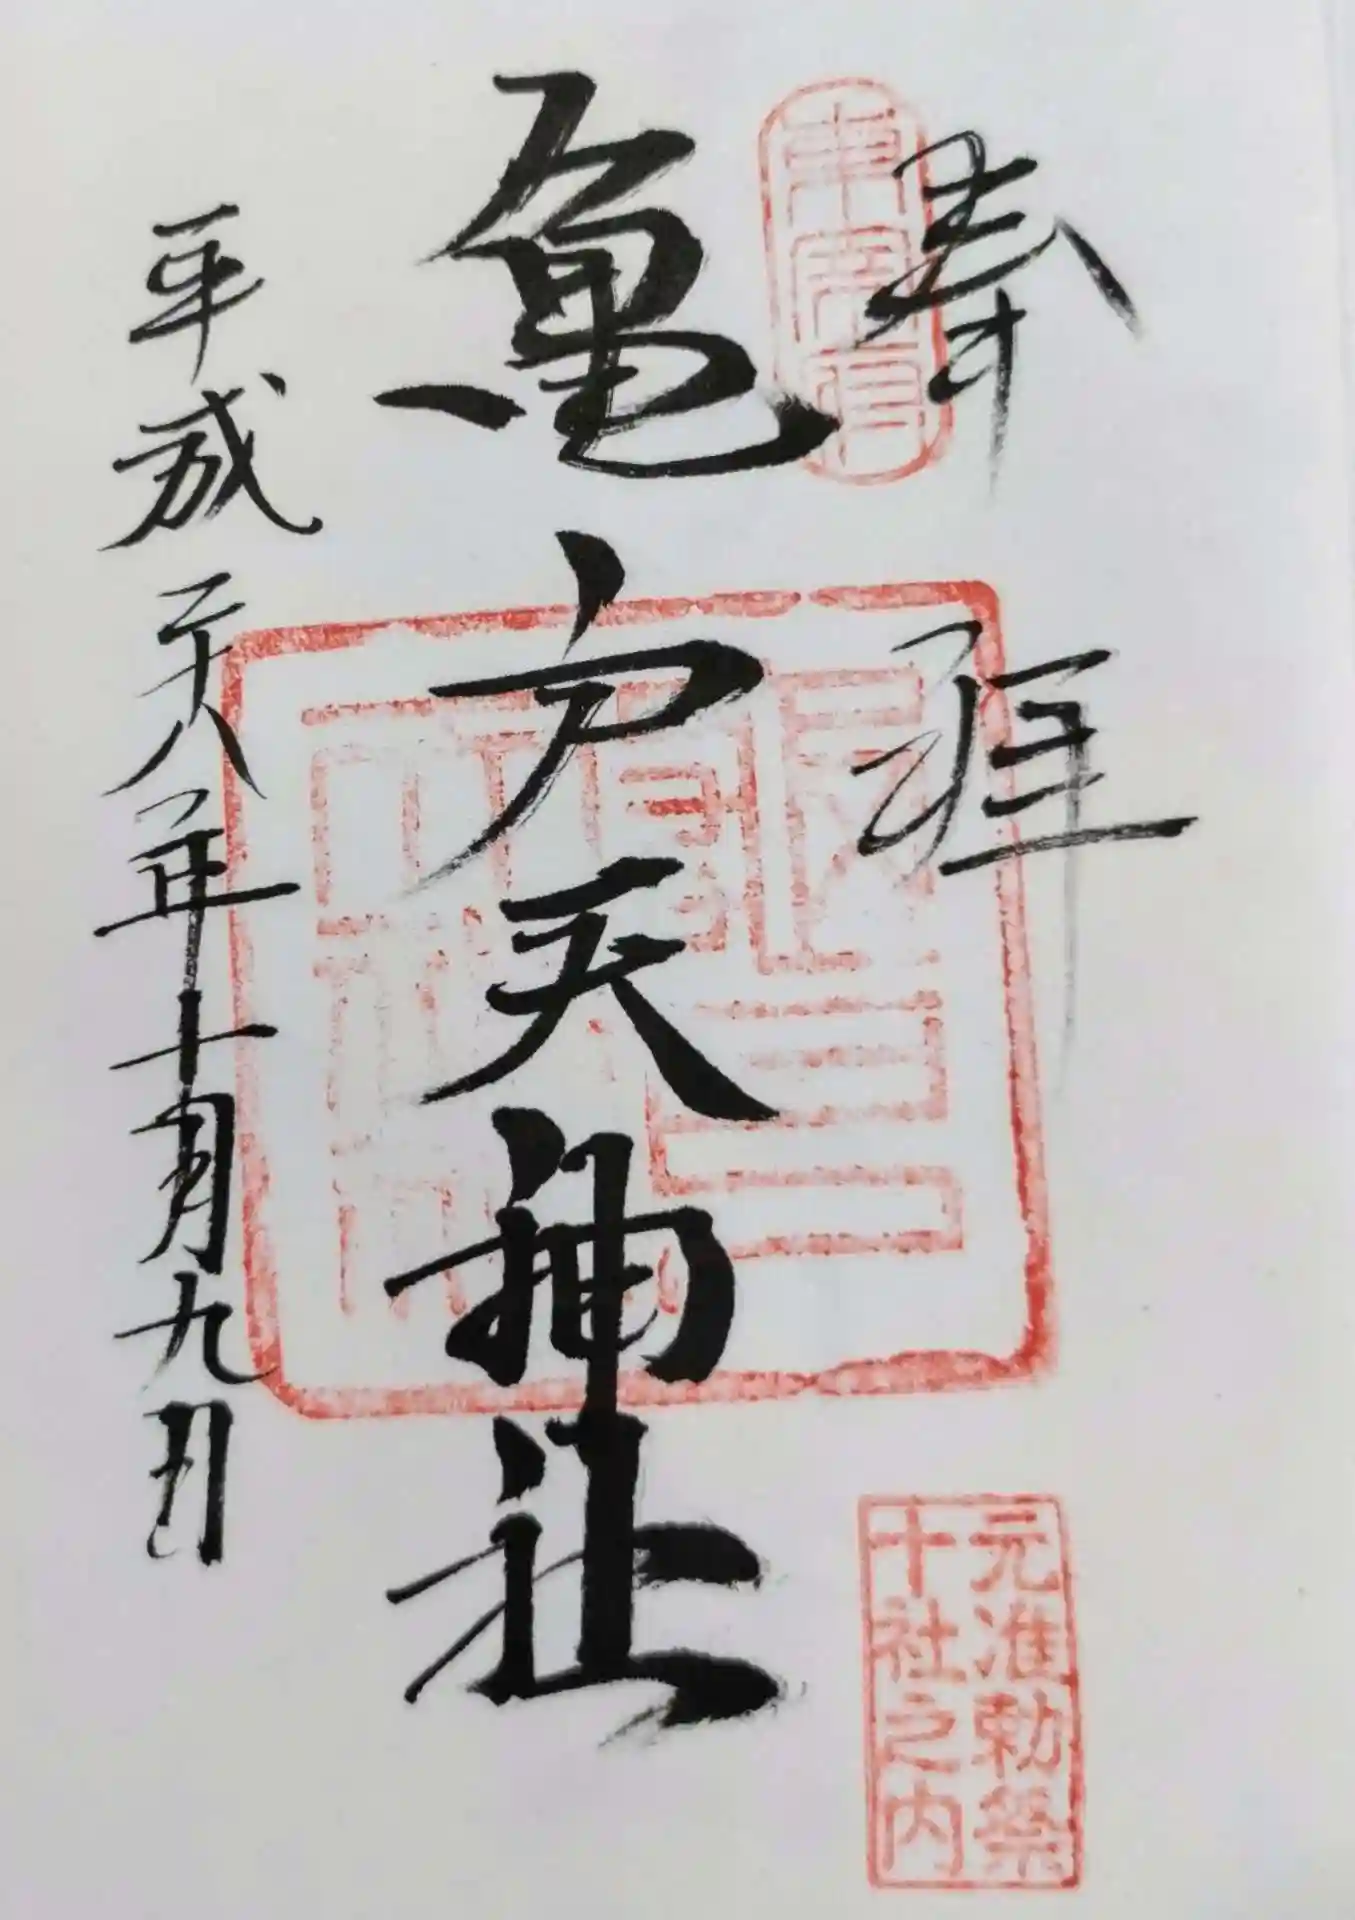 奉拝
東宰府
亀戸天神社
平成二十八年十月九日
元准勅祭
十社之内